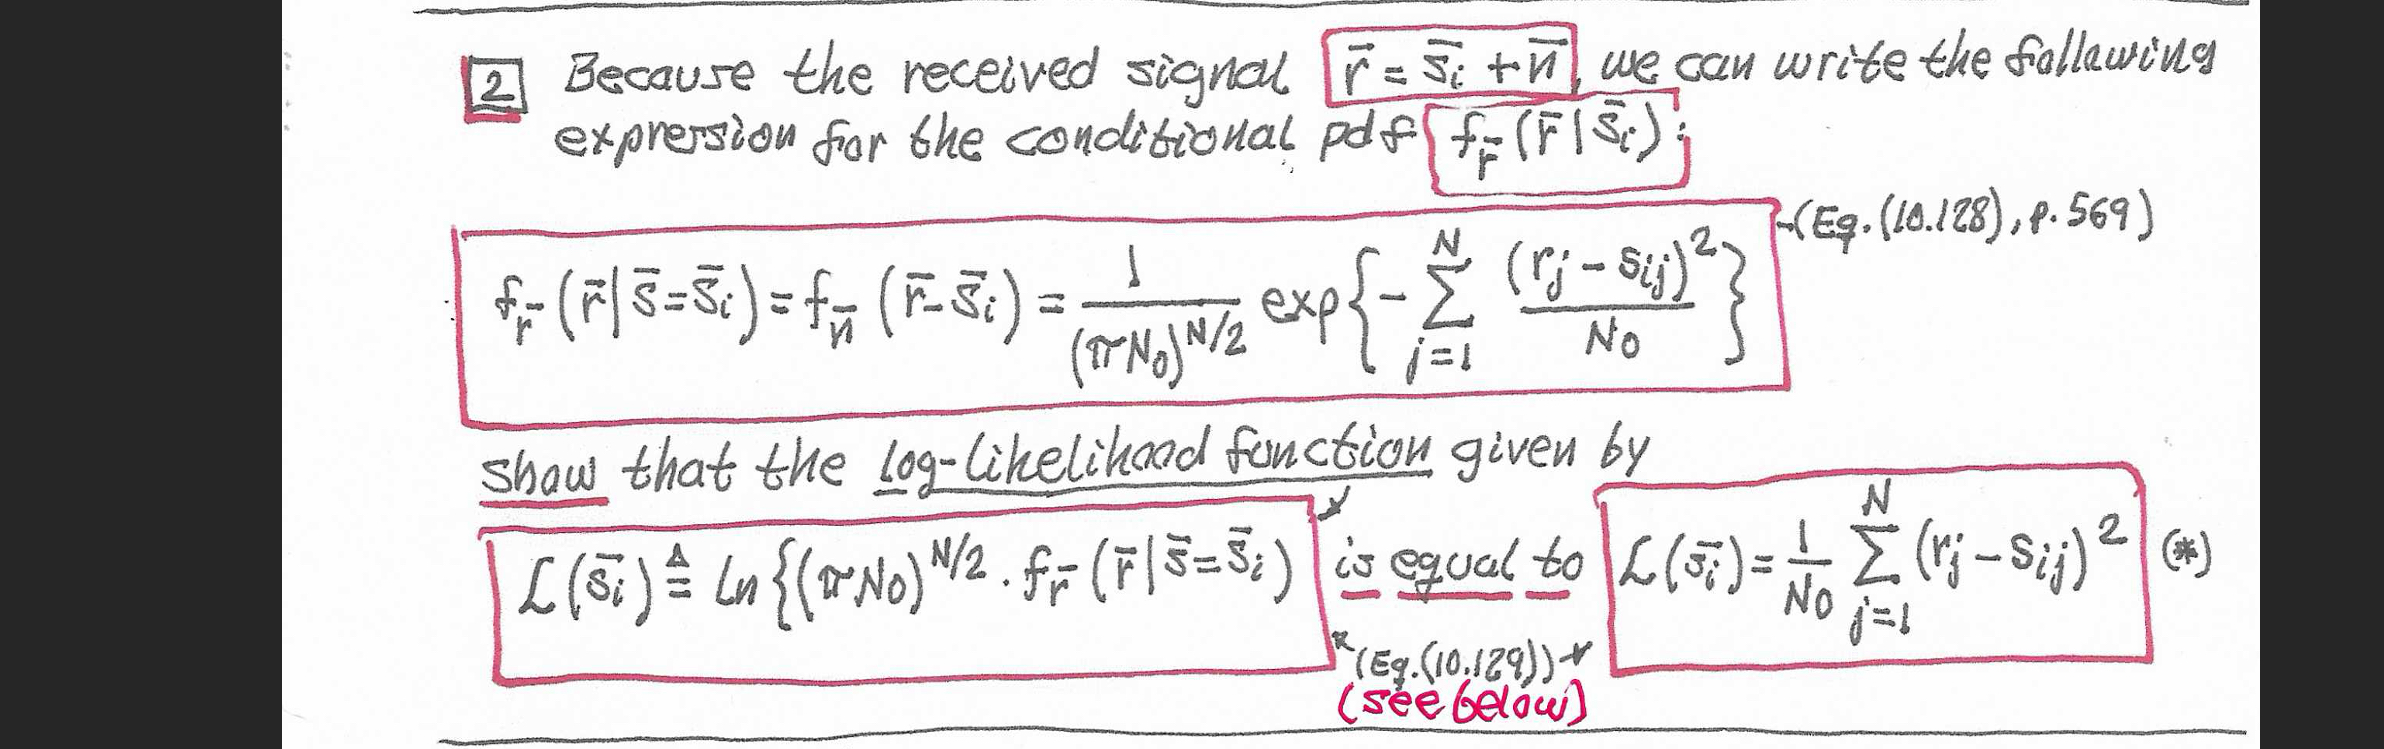 2 Because the received signal r̄ = s̄ᵢ + n̄, we can write the following
expression for the conditional pdf f_r̄ (r̄ | s̄ᵢ):
f_r̄ (r̄ | s̄ = s̄ᵢ) = f_n̄ (r̄ - s̄ᵢ) = 1/(πN₀)^{N/2} exp{ - Σ_{j=1}^{N} (rⱼ - sᵢⱼ)²/N₀ } (Eq. (10.128), p. 569)
show that the log-likelihood function given by
ℒ(s̄ᵢ) ≜ ln{(πN₀)^{N/2} · f_r̄ (r̄ | s̄ = s̄ᵢ) is equal to ℒ(s̄ᵢ) = 1/N₀ Σ_{j=1}^{N} (rⱼ - sᵢⱼ)² (*)
(Eq. (10.129))
(see below)